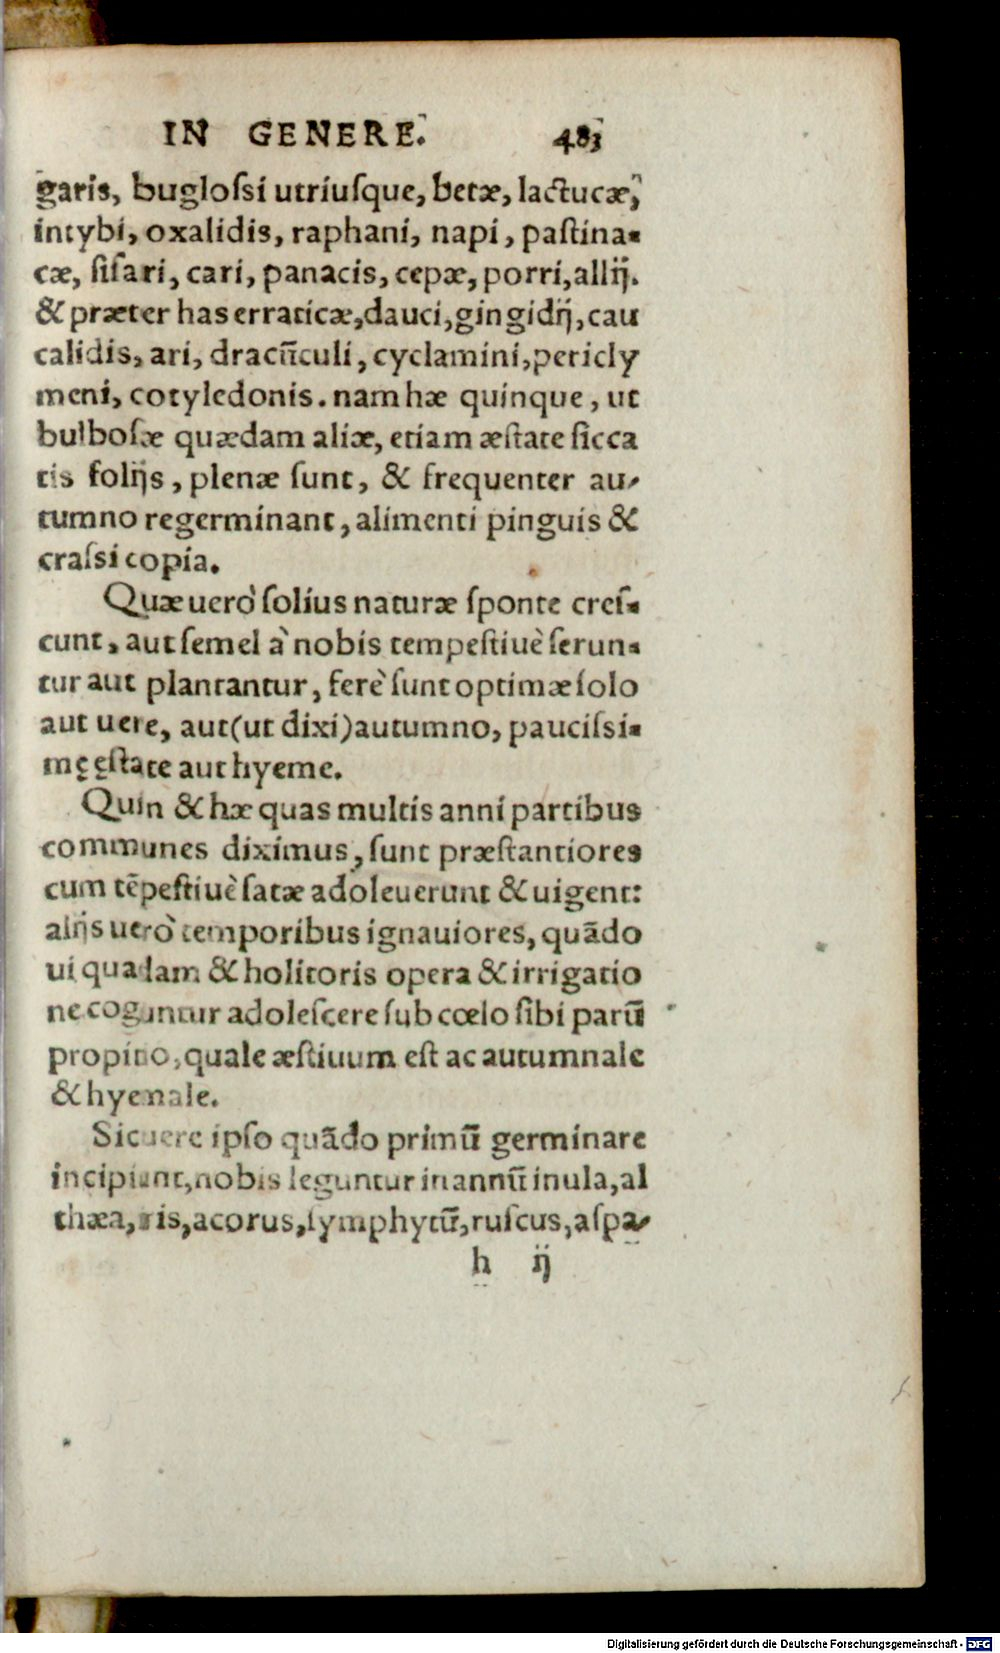 IN GENERE. 483
garis, buglossi utriusque, betæ, lactucæ,
intybi, oxalidis, raphani, napi, pastina-
cæ, sisari, cari, panacis, cepæ, porri, allij.
& præter has erraticæ, dauci, gingidij, cau
calidis, ari, dracūculi, cyclamini, pericly
meni, cotyledonis. nam hæ quinque, ut
bulbosæ quædam aliæ, etiam æstate sicca
tis folijs, plenæ sunt, & frequenter au-
tumno regerminant, alimenti pinguis &
crassi copia.
Quæ uerò solius naturæ sponte cres-
cunt, aut semel à nobis tempestiuè serun-
tur aut plantantur, ferè sunt optimæ solo
aut uere, aut (ut dixi) autumno, paucissi-
mę ęstate aut hyeme.
Quin & hæ quas multis anni partibus
communes diximus, sunt præstantiores
cum tēpestiuè satæ adoleuerunt & uigent:
alijs uerò temporibus ignauiores, quādo
ui quadam & holitoris opera & irrigatio
ne coguntur adolescere sub cœlo sibi parū
propitio, quale æstiuum est ac autumnale
& hyemale.
Sic uere ipso quādo primū germinare
incipiunt, nobis leguntur in annū inula, al
thæa, iris, acorus, symphytū, ruscus, aspa-
h ij
Digitalisierung gefördert durch die Deutsche Forschungsgemeinschaft - DFG